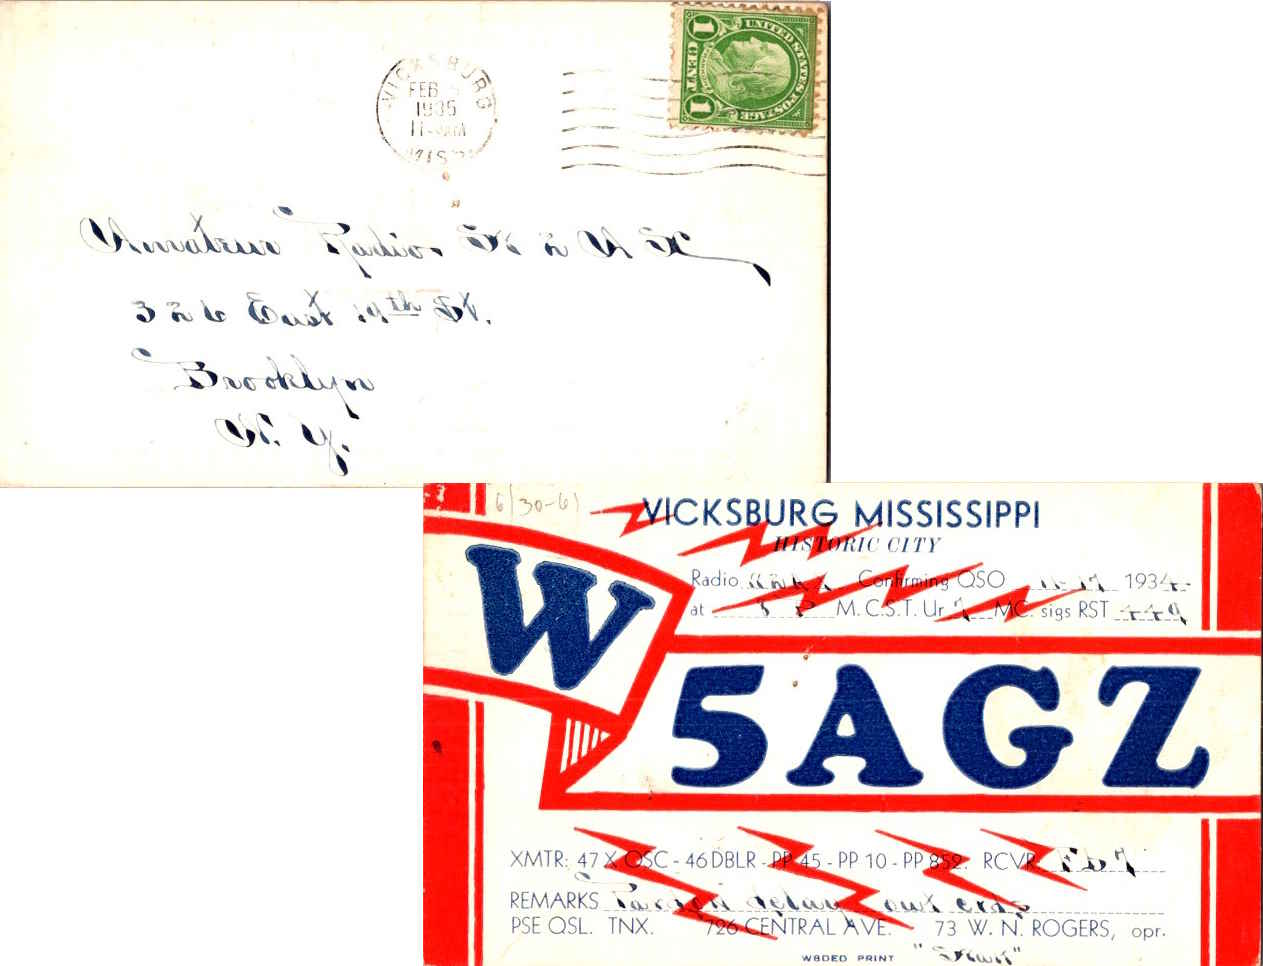 VICKSBURG
FEB 5
1935
11-AM
MISS.
UNITED STATES POSTAGE
1 CENT 1
Amateur Radio. W 2 A K
326 East 19th St.
Brooklyn
N. Y.
6/30-61
VICKSBURG MISSISSIPPI
HISTORIC CITY
Radio Confirming QSO 11-17 1934
at 5 P M. C.S.T. Ur 7 MC. sigs RST 449
W
5AGZ
XMTR: 47 X OSC - 46 DBLR - PP 45 - PP 10 - PP 852. RCVR Fb7
REMARKS Pardon delay out crds
PSE QSL. TNX. 726 CENTRAL AVE. 73 W. N. ROGERS, opr.
W8DED PRINT